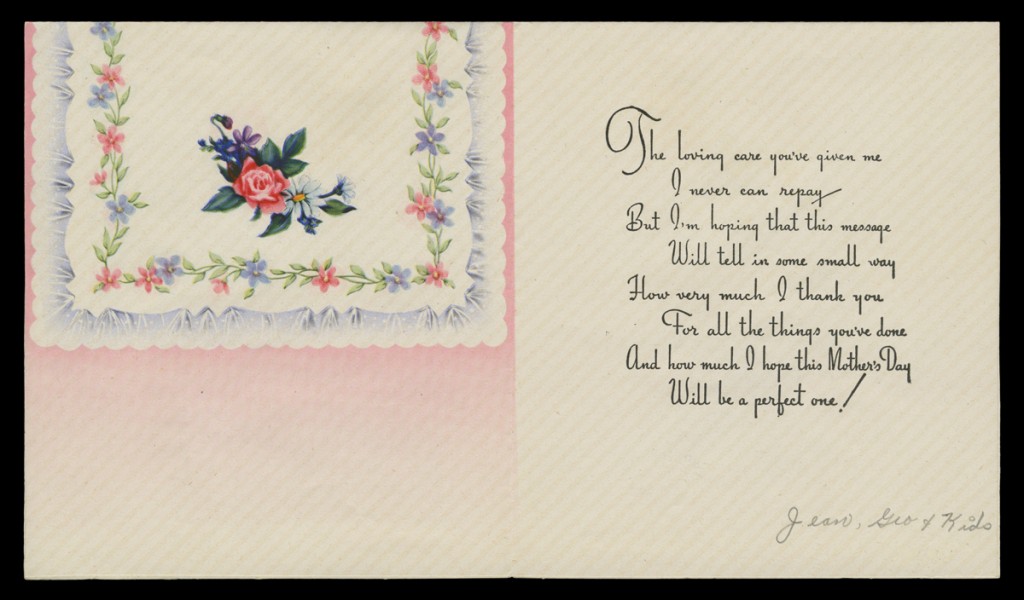 The loving care you've given me
I never can repay
But I'm hoping that this message
Will tell in some small way
How very much I thank you
For all the things you've done
And how much I hope this Mother's Day
Will be a perfect one!
Jean, Geo & Kids